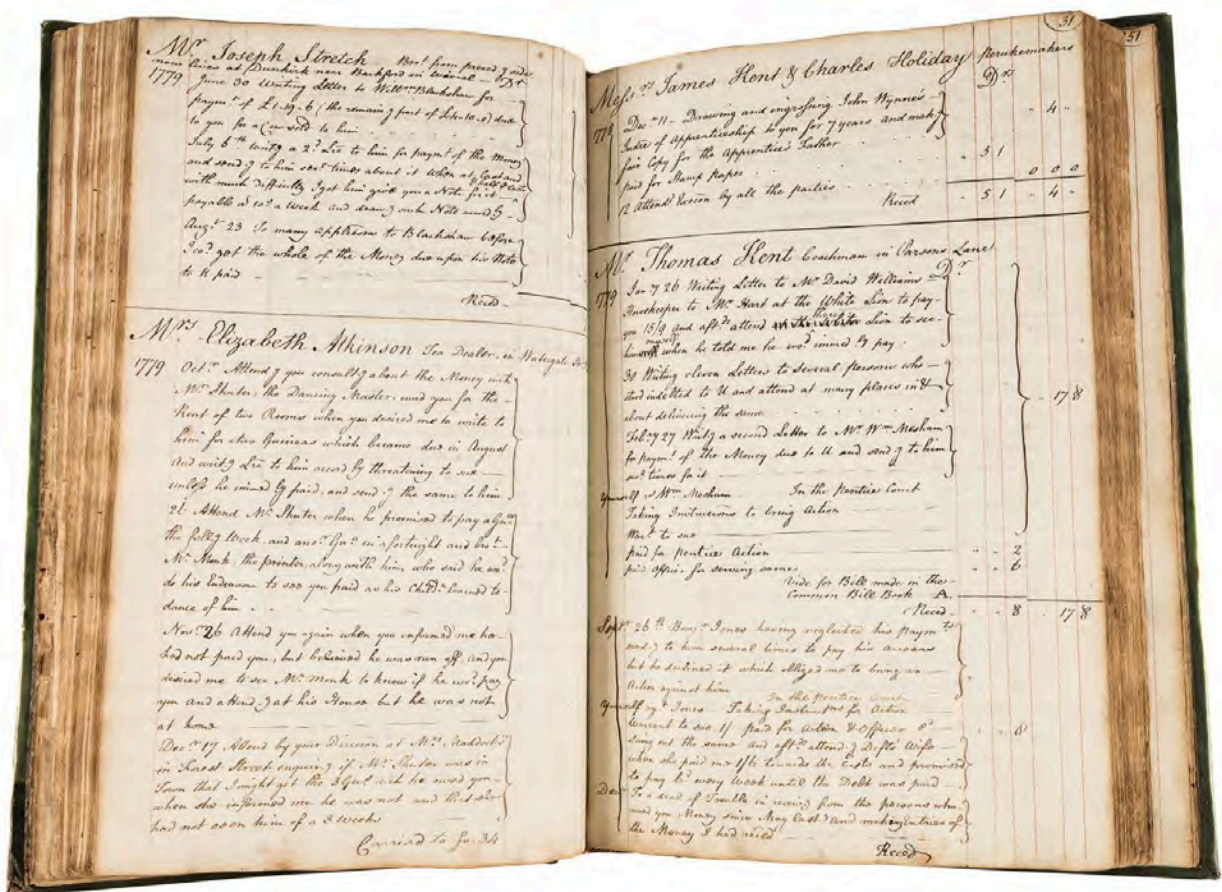 Mr. Joseph Stretch Brot. from preced.g side
now lives at Dunkirk near Backford in Wirral Dr
1779 June 30 Writing Letter to Wm. Blackshaw for
paymt. of £1-19-6 (the remaining part of due
to you for a Cow sold to him
July 6th writg a 2d. Lre to him for paymt of the Money
and send.g to him sevl. times about it When at Last and
with much difficulty I got him give you a Note first
payable at 10s a Week and draw.g such Note
Augt. 23 To many applicaons to Blackshaw before
I cod. got the whole of the Money due upon his Note
to U paid
Recd.
Mrs Elizabeth Atkinson Tea Dealer, in Watergate
1779 Octr. Attend.g you consultg about the Money wch
Mr. Shuter, the Dancing Master, owed you for the
Rent of two Rooms when you desired me to write to
him for two Guineas which became due in August
And writ.g Lre to him accord.ly threatening to sue
unless he immed.ly paid, and send.g the same to him
21 Attend Mr. Shuter when he promised to pay a Guin
the follg Week, and anor. Gua. in a fortnight and brot.
Mr. Monk the printer, along with him who said he wod.
do his Endeavour to see you paid as his Childn. learned to
dance of him
Novr. 26 Attend you again when you informed me he
had not paid you, but believed he was run off, and you
desired me to see Mr. Monk to know if he wod. pay
you and attend.g at his House but he was not
at home
Decr. 17 Attend by your Direccon at Mrs. Maddock's
in Forest Street enquiring if Mr. Shuter was in
Town that I might get the 3 Gus. wch he owed you
when she informed me he was not and that she
had not seen him of a 3 weeks
Carried to fo: 34
31
51
Messrs. James Kent & Charles Holiday Perukemakers
Drs
1779 Decr. 11 - Drawing and engrossing John Wynne's
Indre of Apprenticeship to you for 7 years and mak.g - 4 -
fair Copy for the Apprentice's Father
paid for Stamp Paper - 5 1
12 Attendg Execon by all the parties 0 0 0
Reced - 5 1 - 4 -
Mr. Thomas Kent Coachman in Parsons Lane
Dr
1779 Jan.y 26 Writing Letter to Mr. David Williams
to Mr. Hart at the White Lion to pay
you 15/9 and aftds. attend at the White Lion to see
himself when he told me he wod. immed.ly pay
30 Writing eleven Letters to several persons who
stood indebted to U and attend at many places in &
about delivering the same - 17 8
Feb.y 27 Writ.g a second Letter to Mr. Wm Mesham
for paymt. of the Money due to U and send.g to him
sevl. times for it
Yourself v Wm. Mesham In the Pentice Court
Taking Instruccons to bring Action
Wart. to sue
paid for pentice Action - - 2
paid Officr. for serving same - - 6
Vide for Bill made in the
Common Bill Book A.
Reced - - 8 - 17 8
Septr. 26th Benjn. Jones having neglected his Paymts
send.g to him several times to pay his arrears
but he declined it which obliged me to bring an
Action against him In the Pentice Court
Yourself agt. Jones Taking Instructns for Action
Warrant to sue 1/ paid for Action & Officer 8d - 8
Suing out the same and aftds. attend.g Defts. Wife
when she paid me 1/6 towards the Costs and promised
to pay 6d every Week until the Debt was paid
Decr. To a deal of Trouble in receiv.g from the persons who
owed you Money since May last and making Entries of
the Money I had reced
Reced